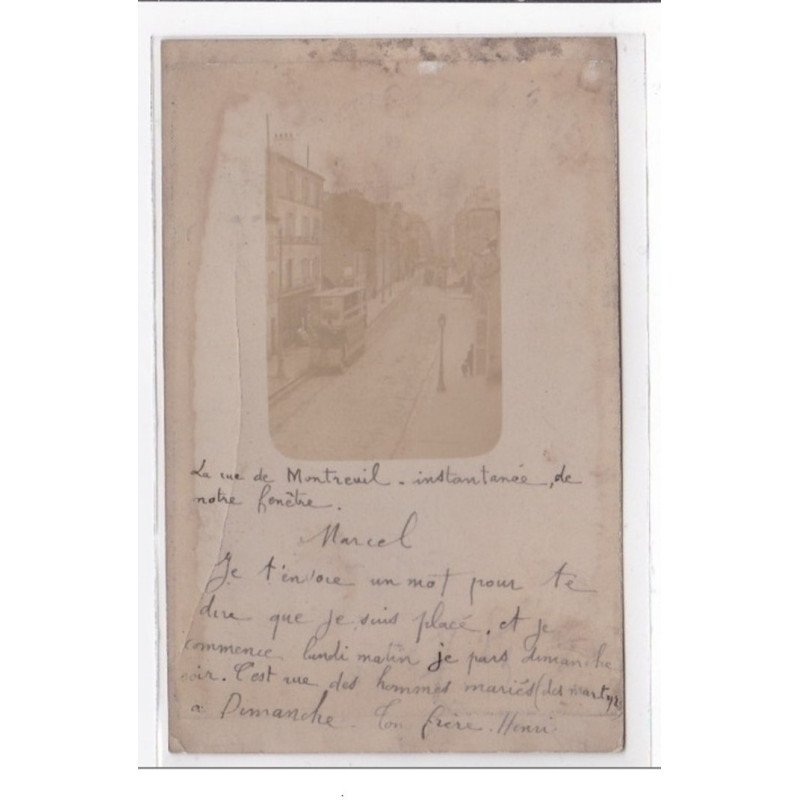 La rue de Montreuil - instantanée, de
notre fenêtre.
Marcel
Je t'envoie un mot pour te
dire que je suis placé, et je
commence lundi matin je pars dimanche
soir. C'est rue des hommes mariés (des martyr
à Dimanche - Ton frère. Henri